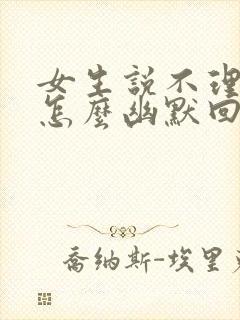 女生説不理
怎麼幽默回
喬納斯-埃里